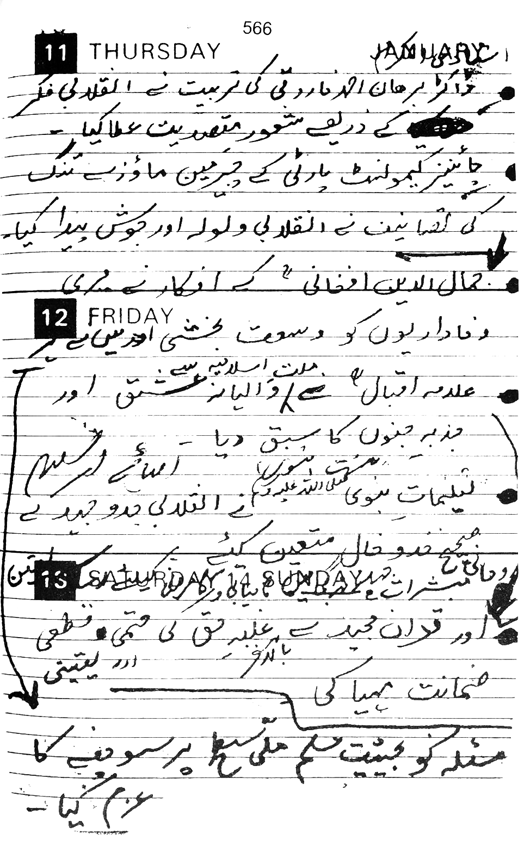 566
11 THURSDAY JANUARY
ڈاکٹر برھان احمد فاروقی کی تربیت نے انقلابی فکر
کے ذریعے شعور مقصدیت عطا کیا -
چائینیز کیمونسٹ پارٹی کے چیرمین ماؤزے تنگ
کی تصانیف نے انقلابی ولولہ اور جوش پیدا کیا -
جمال الدین افغانی کے افکار نے میری
12 FRIDAY
وفاداریوں کو وسعت بخشی اور
ملت اسلامیہ سے
علامہ اقبال نے والہانہ عشق اور
جذبہ جنوں کا سبق دیا -
سنت نبوی
تعلیمات نبوی صلی اللہ علیہ وسلم نے انقلابی جدوجہد کے
صحیح خدوخال متعین کیئے
13 SATURDAY 14 SUNDAY
اور قرآن مجید نے غلبہ حق کی حتمی قطعی
بالآخر اور یقینی
ضمانت مہیا کی
مسئلہ کو بحیثیت مسلم ملی سطح پر سوچنے کا
عزم کیا -